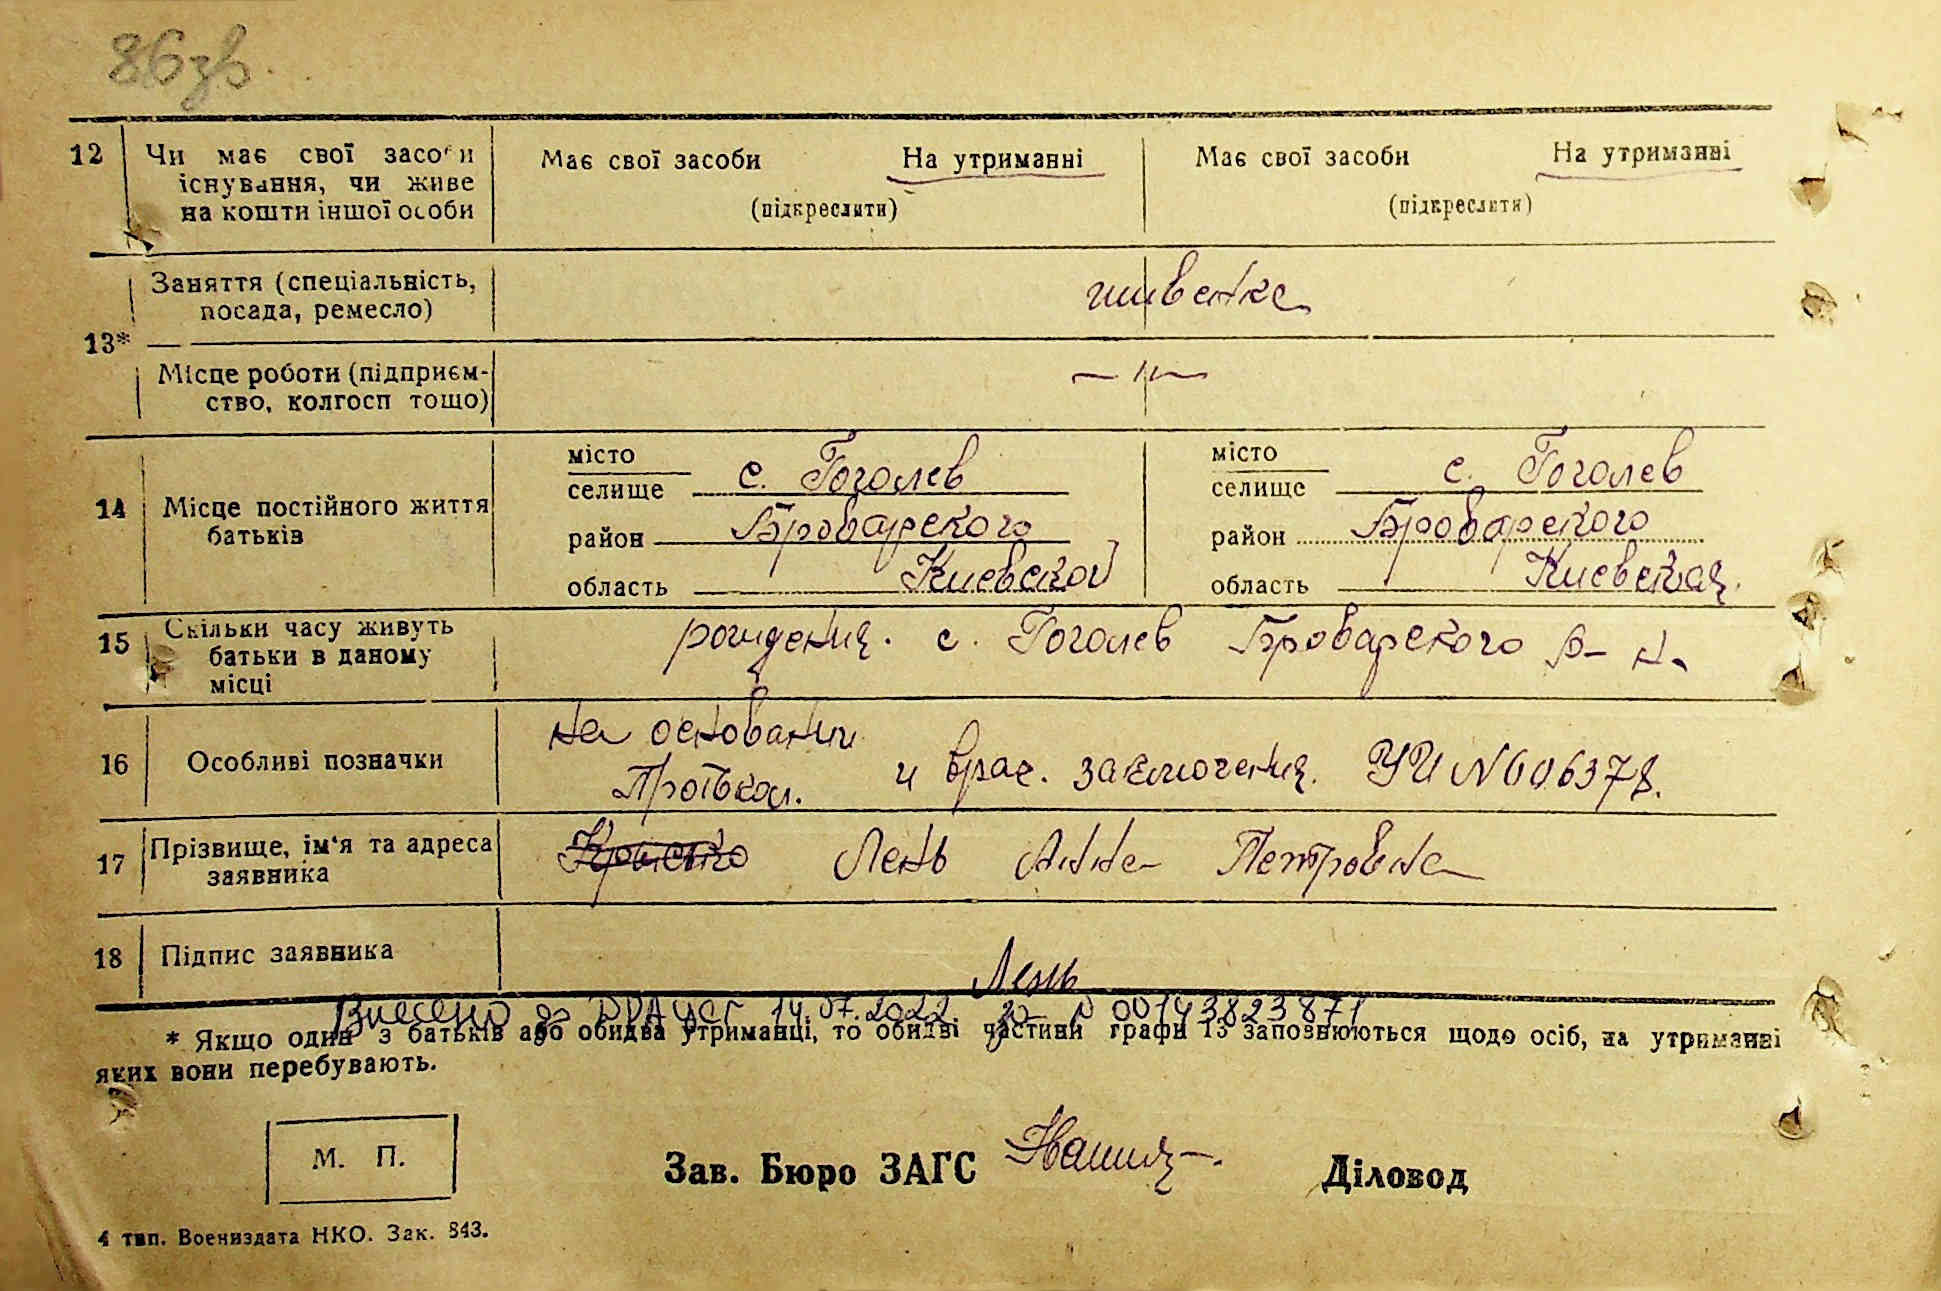 86зв.
12 Чи має свої засоби Має свої засоби На утриманні Має свої засоби На утриманні
існування, чи живе
на кошти іншої особи (підкреслити) (підкреслити)
Заняття (спеціальність, швейка
посада, ремесло)
13*
Місце роботи (підприєм- — " —
ство, колгосп тощо)
місто місто
селище с. Гоголев селище с. Гоголев
14 Місце постійного життя
батьків район Броварского район Броварского
область Киевской область Киевская.
15 Скільки часу живуть рождения. с. Гоголев Броварского р-н.
батьки в даному
місці
на основании
16 Особливі позначки и врач. заключения. УИ N 606378.
17 Прізвище, ім'я та адреса Лень Анна Петровна
заявника
18 Підпис заявника Лень
Внесено до ДРАЦСГ 14.07.2022 00143823871
* Якщо один з батьків або обидва утриманці, то обидві частини графи 13 заповнюються щодо осіб, на утриманні
яких вони перебувають.
М. П.
Зав. Бюро ЗАГС Діловод
4 тип. Воениздата НКО. Зак. 843.